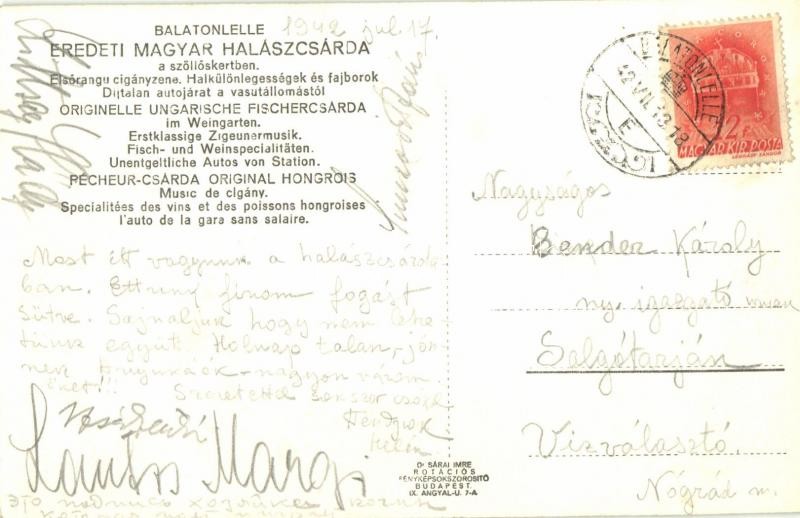 BALATONLELLE 1942 jul. 17.
EREDETI MAGYAR HALÁSZCSÁRDA
a szöllőskertben.
Elsőrangu cigányzene. Halkülönlegességek és fajborok
Dijtalan autojárat a vasutállomástól
ORIGINELLE UNGARISCHE FISCHERCSARDA
im Weingarten.
Erstklassige Zigeunermusik.
Fisch- und Weinspecialitäten.
Unentgeltliche Autos von Station.
PÉCHEUR-CSÁRDA ORIGINAL HONGROIS
Music de cigány.
Specialitées des vins et des poissons hongroises
l'auto de la gara sans salaire.
Most itt vagyunk a halászcsárdá-
ban. Ettünk finom fogást
sütve. Sajnáljuk hogy nem lehe-
tünk együtt. Holnap talán jön-
nek
őket!!! Szeretettel sokszor csókol
Helén
Margi
BALATONLELLE
42.VII.18.18
E
12 f
MAGYAR KIR. POSTA
Nagyságos
Bender Károly
ny. igazgató
Salgótarján
Vizválasztó.
Nógrád m.
Dr SÁRAI IMRE
ROTÁCIÓS
FÉNYKÉPSOKSZOROSITÓ
BUDAPEST.
IX. ANGYAL-U. 7-A.